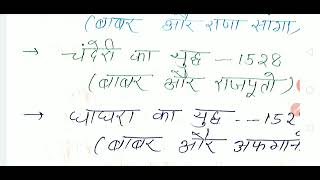 (बाबर और राणा सांगा,
→ चंदेरी का युद्ध -- 1528
(बाबर और राजपूतो)
→ घाघरा का युद्ध --- 152
(बाबर और अफगान